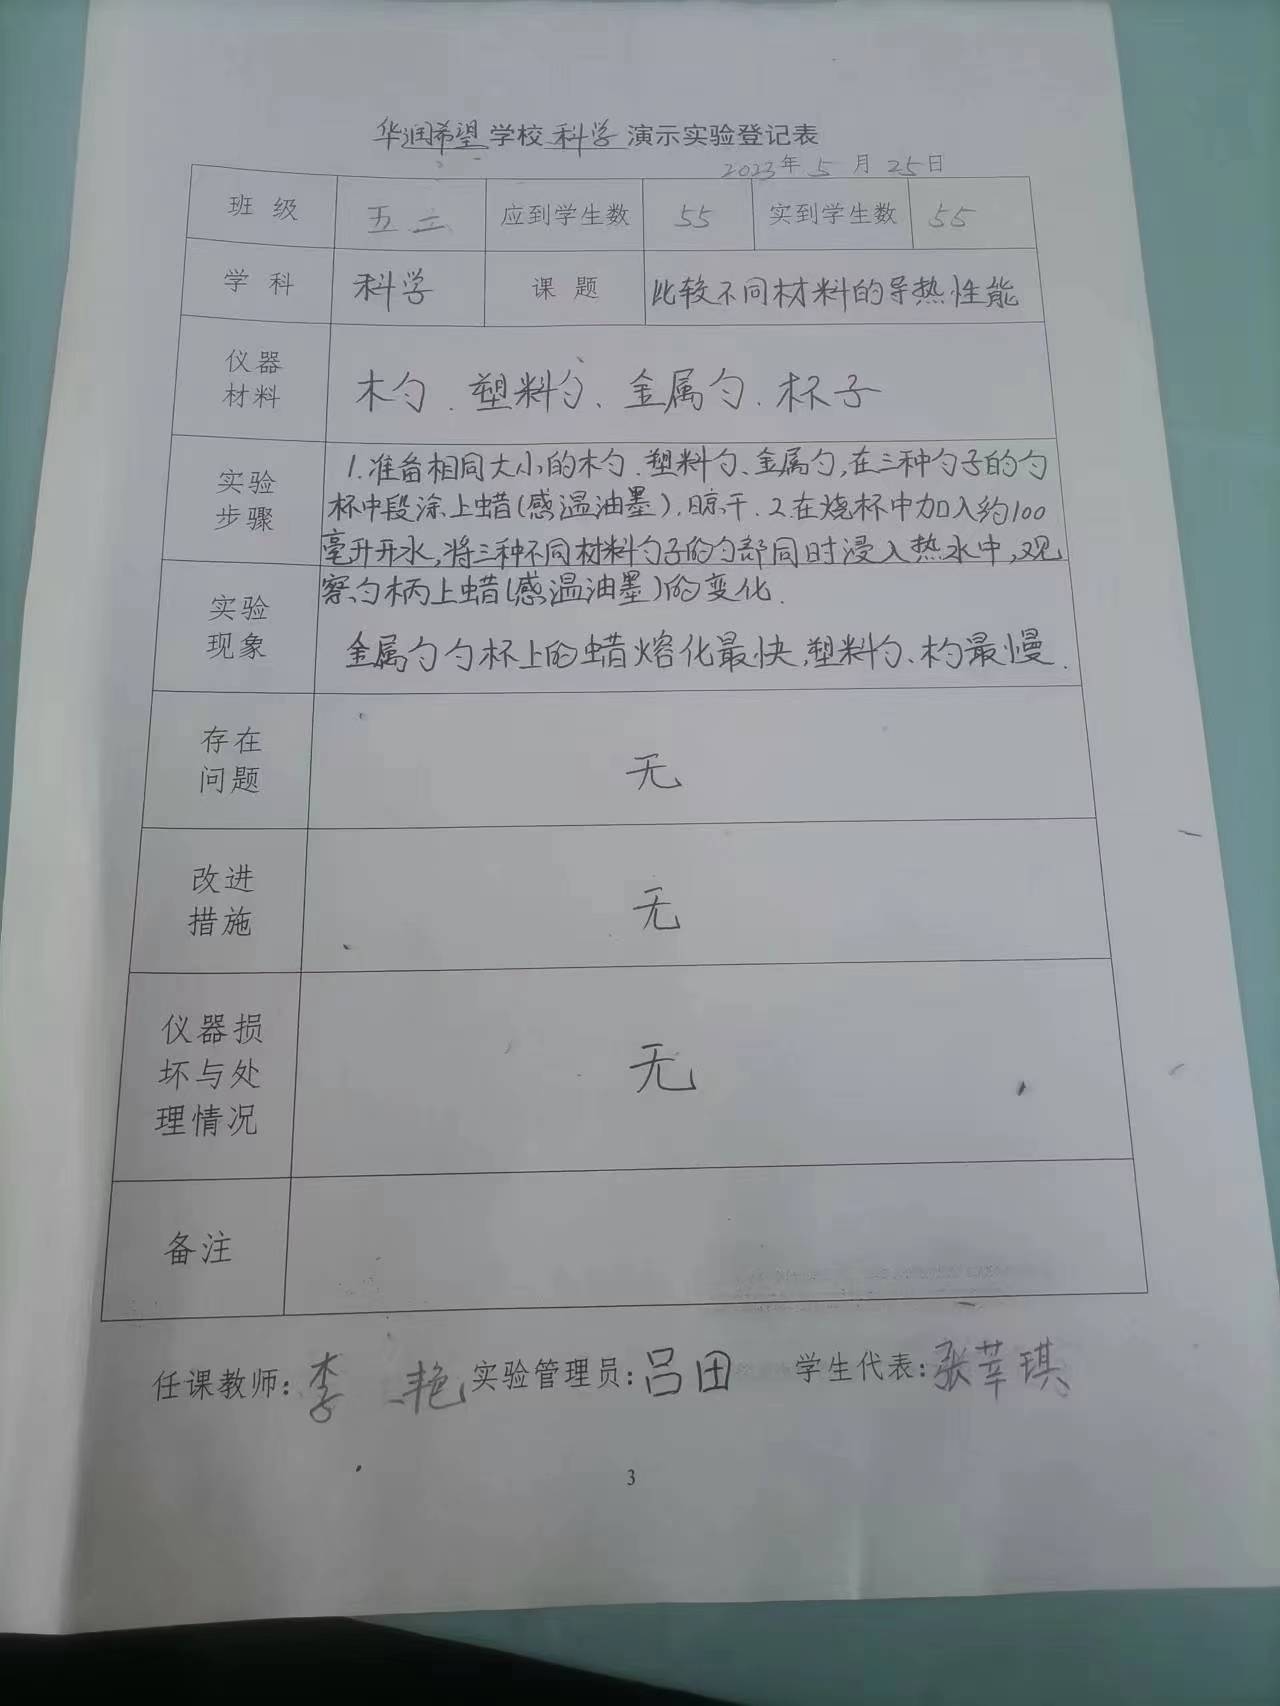 华润希望学校科学演示实验登记表
2023年5月25日
班级 五二 应到学生数 55 实到学生数 55
学科 科学 课题 比较不同材料的导热性能
仪器
材料
木勺、塑料勺、金属勺、杯子
实验
步骤
1.准备相同大小的木勺、塑料勺、金属勺,在三种勺子的勺
杯中段涂上蜡(感温油墨),晾干、2.在烧杯中加入约100
毫升开水,将三种不同材料勺子的勺部同时浸入热水中,观
察勺柄上蜡(感温油墨)的变化.
实验
现象
金属勺勺杯上的蜡熔化最快,塑料勺、木勺最慢.
存在
问题
无
改进
措施
无
仪器损
坏与处
理情况
无
备注
任课教师:李艳 实验管理员:吕田 学生代表:张莘琪
3